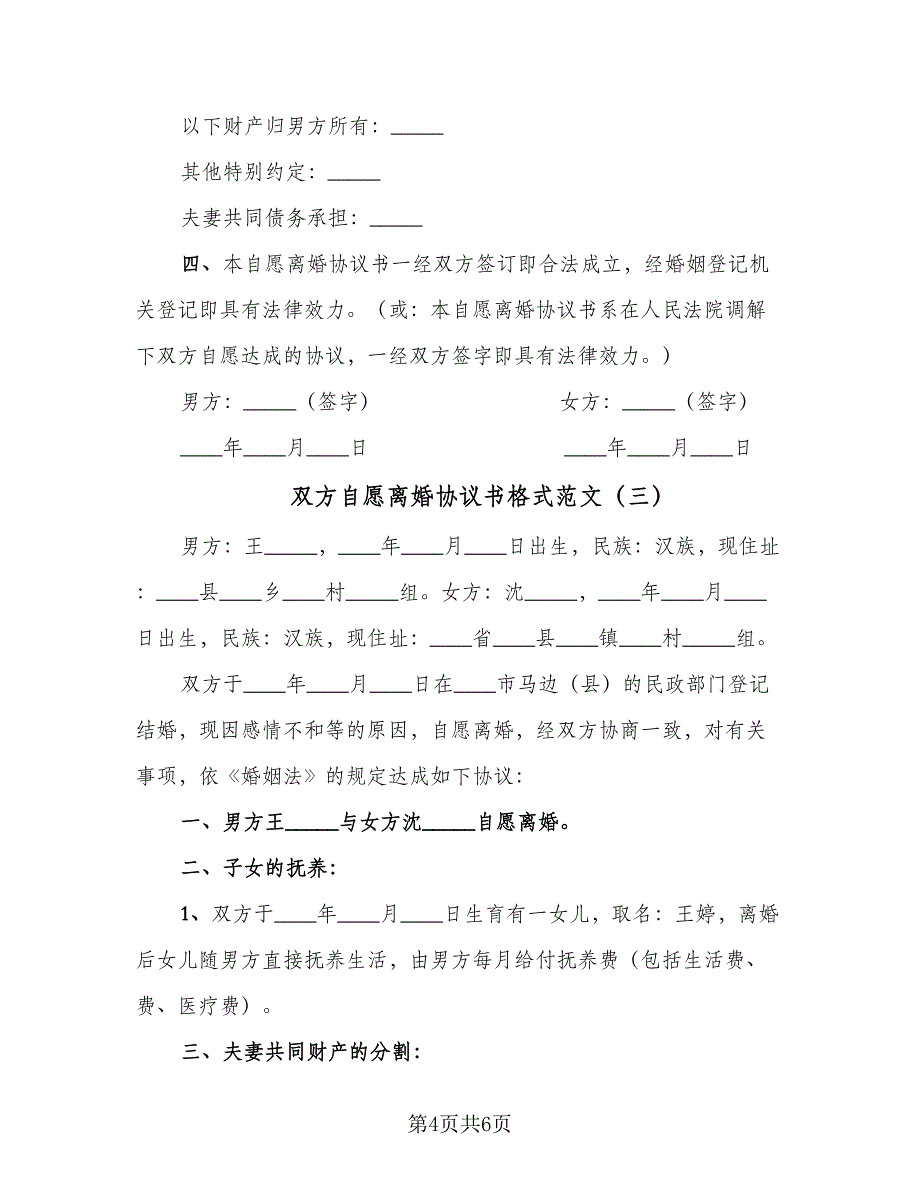 以下财产归男方所有：_____
其他特别约定：_____
夫妻共同债务承担：_____
四、本自愿离婚协议书一经双方签订即合法成立，经婚姻登记机
关登记即具有法律效力。（或：本自愿离婚协议书系在人民法院调解
下双方自愿达成的协议，一经双方签字即具有法律效力。）
男方：_____（签字） 女方：_____（签字）
____年____月____日 ____年____月____日
双方自愿离婚协议书格式范文（三）
男方：王_____，____年____月____日出生，民族：汉族，现住址
：____县____乡____村_____组。女方：沈_____，____年____月____
日出生，民族：汉族，现住址：____省____县____镇____村_____组。
双方于____年____月____日在____市马边（县）的民政部门登记
结婚，现因感情不和等的原因，自愿离婚，经双方协商一致，对有关
事项，依《婚姻法》的规定达成如下协议：
一、男方王_____与女方沈_____自愿离婚。
二、子女的抚养：
1、双方于____年____月____日生育有一女儿，取名：王婷，离婚
后女儿随男方直接抚养生活，由男方每月给付抚养费（包括生活费、
费、医疗费）。
三、夫妻共同财产的分割：
第4页共6页